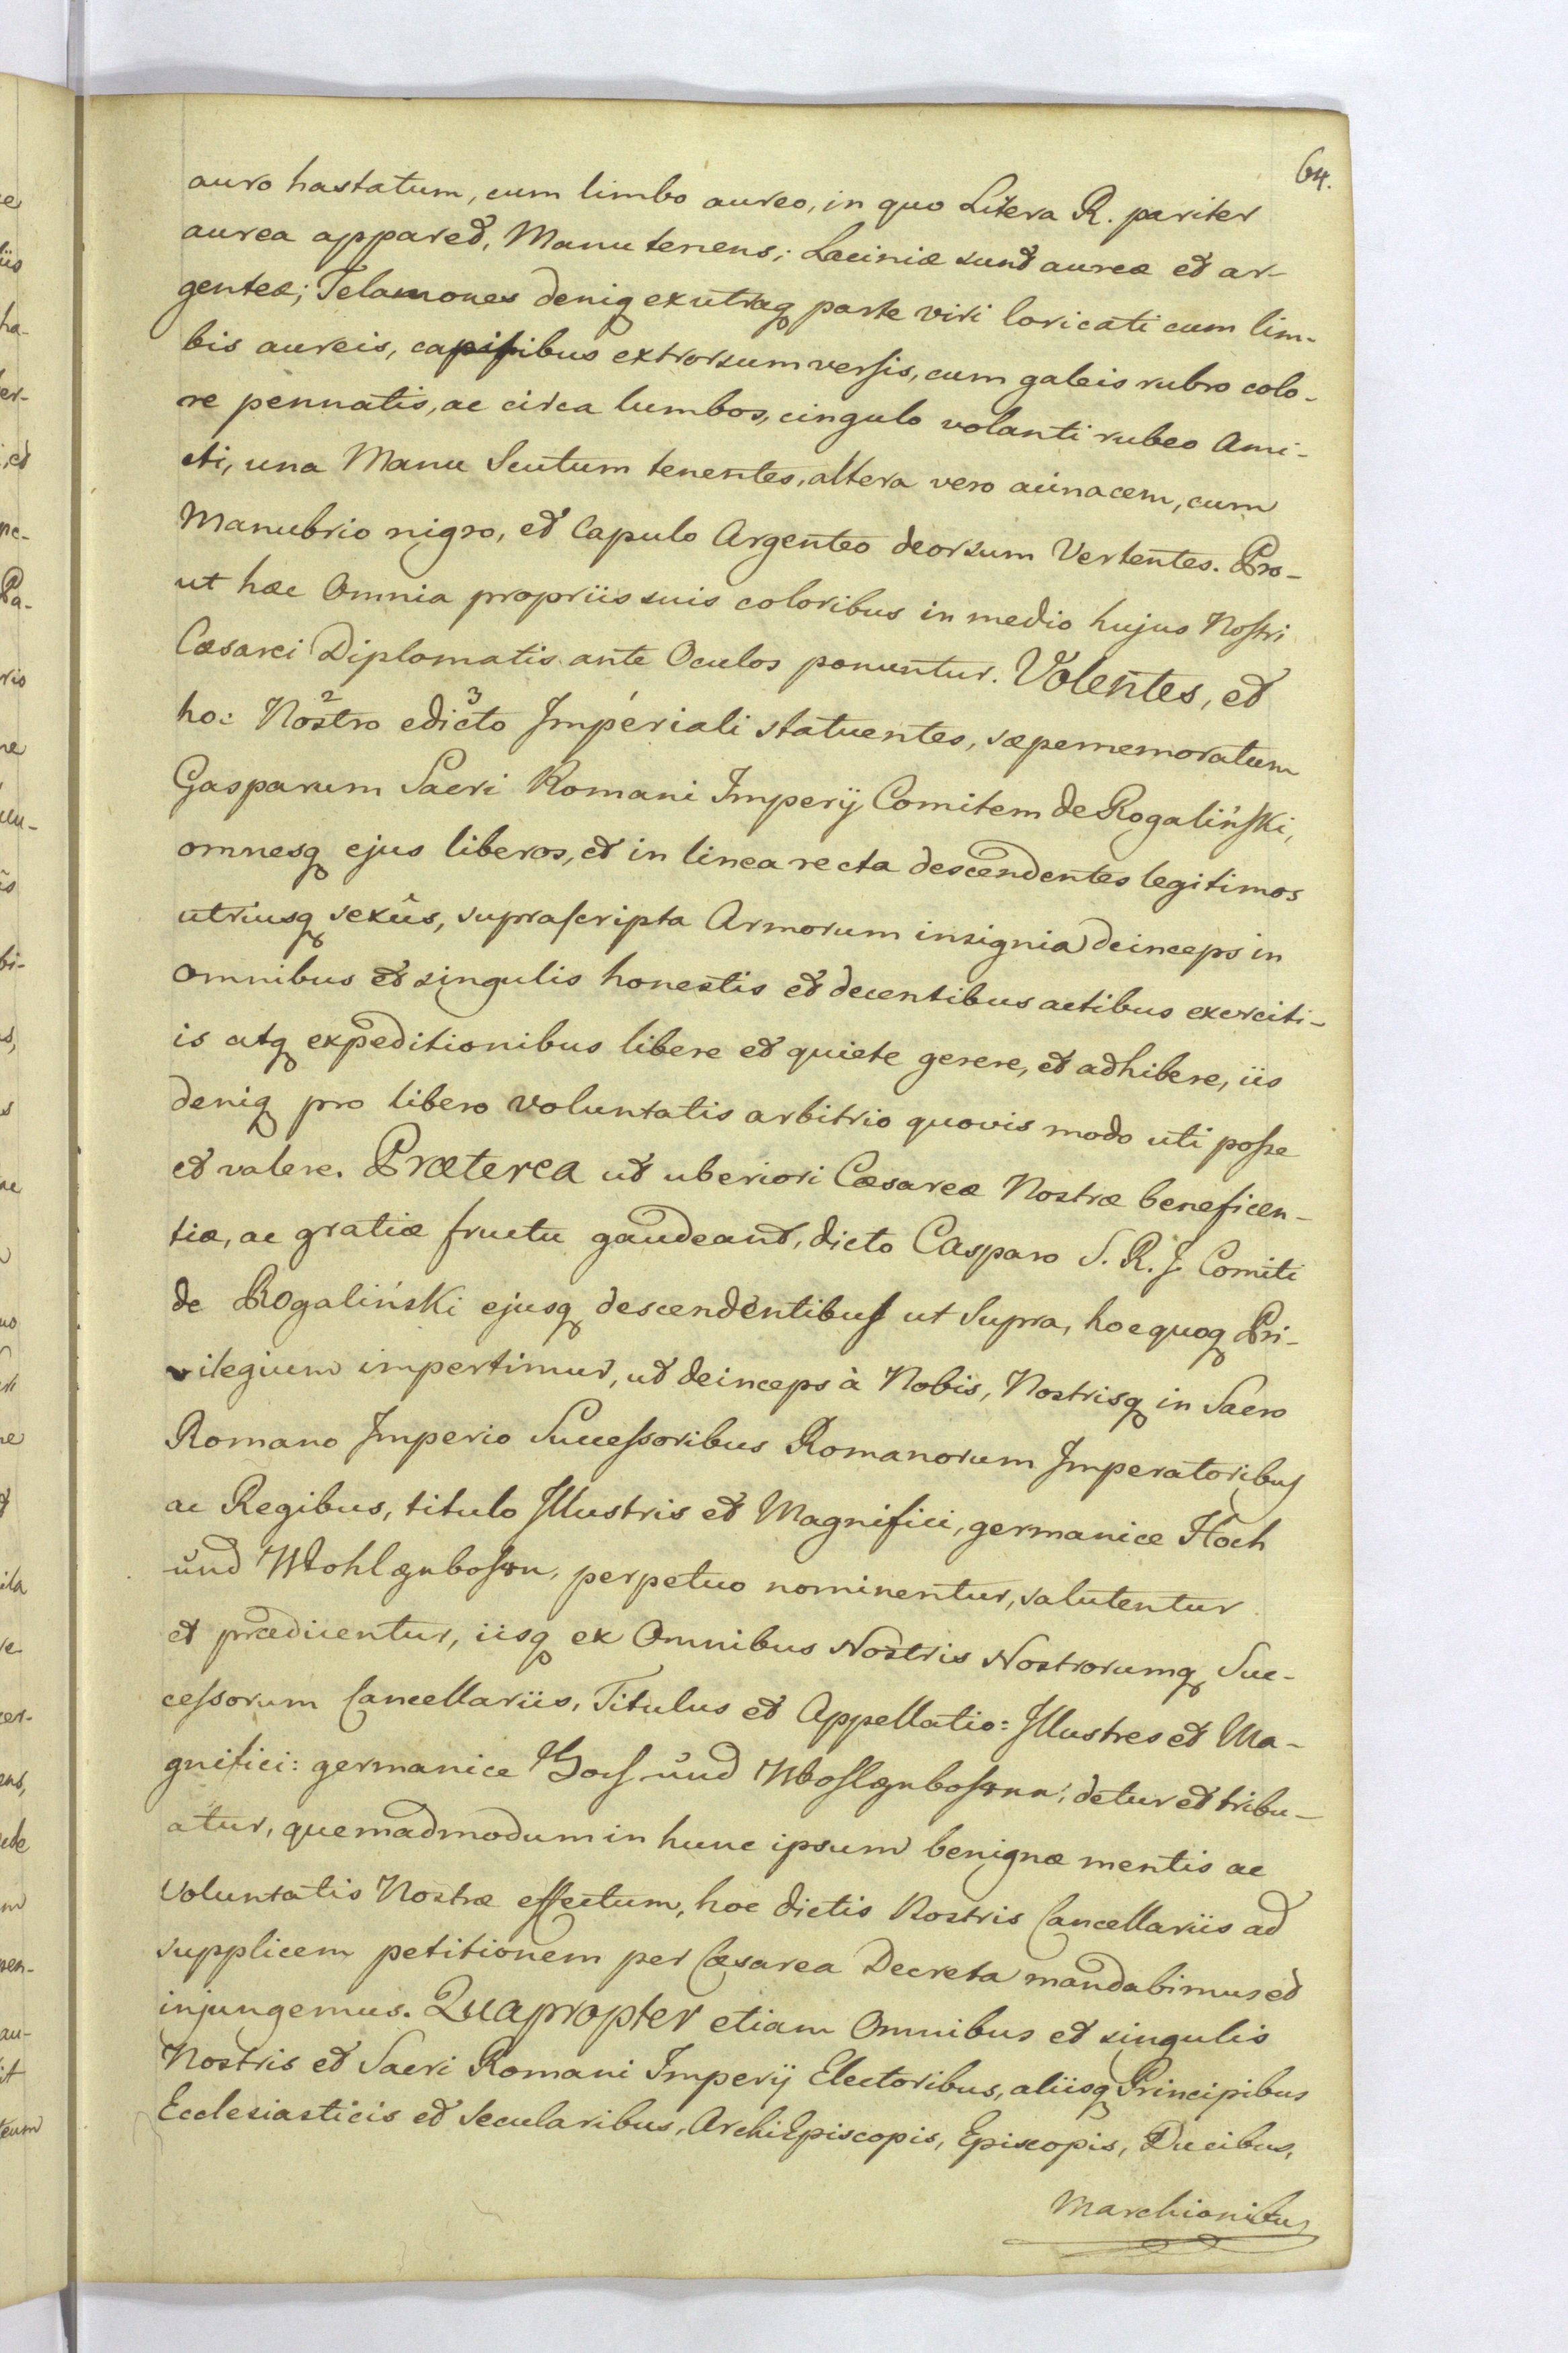 64.
auro hastatum, cum limbo aureo, in quo Litera R. pariter
aurea apparet, Manu tenens; Laciniæ sunt aureæ et ar-
genteæ; Telamones deniq exutraq parte viri loricati cum lim-
bis aureis, capitibus extrorsum versis, cum galeis rubro colo-
re pennatis, ac circa lumbos, cingulo volanti rubeo Ami-
cti, una Manu Scutum tenentes, altera vero acinacem, cum
Manubrio nigro, et Capulo Argenteo deorsum Vertentes. Pro-
ut hæc Omnia propriis suis coloribus in medio hujus Nostri
Cæsarei Diplomatis ante Oculos ponuntur. Volentes, et
hoc Nostro edicto Imperiali statuentes, sæpememoratum
Gasparum Sacri Romani Imperij Comitem de Rogaliński,
omnesq ejus liberos, et in linea recta descendentes legitimos
utriusq sexûs, suprascripta Armorum insignia deinceps in
omnibus et singulis honestis et decentibus actibus exerciti-
is atq expeditionibus libere et quiete gerere, et adhibere, iis
deniq pro libero voluntatis arbitrio quovis modo uti posse
et valere. Præterea ut uberiori Cæsareæ Nostræ beneficen-
tiæ, ac gratiæ fructu gaudeant, dicto Casparo S. R. J. Comiti
de Rogaliński ejusq descendentibus ut Supra, hoc quoq Pri-
vilegium impertimur, ut deinceps à Nobis, Nostrisq in Sacro
Romano Imperio Successoribus Romanorum Imperatoribus
ac Regibus, titulo Illustris et Magnifici, germanice Hoch
und Wohlgebohrn, perpetuo nominentur, salutentur
et prædicentur, iisq ex Omnibus Nostris Nostrorumq Suc-
cessorum Cancellariis, Titulus et Appellatio: Illustres et Ma-
gnifici: germanice Hoch und Wohlgebohrnn, detur et tribu-
atur, quemadmodum in hunc ipsum benignæ mentis ac
Voluntatis Nostræ effectum, hoc dictis Nostris Cancellariis ad
supplicem petitionem per Cæsarea Decreta mandabimus et
injungemus. Quapropter etiam Omnibus et singulis
Nostris et Sacri Romani Imperij Electoribus, aliisq Principibus
Ecclesiasticis et Secularibus, ArchiEpiscopis, Episcopis, Ducibus,
Marchionibus